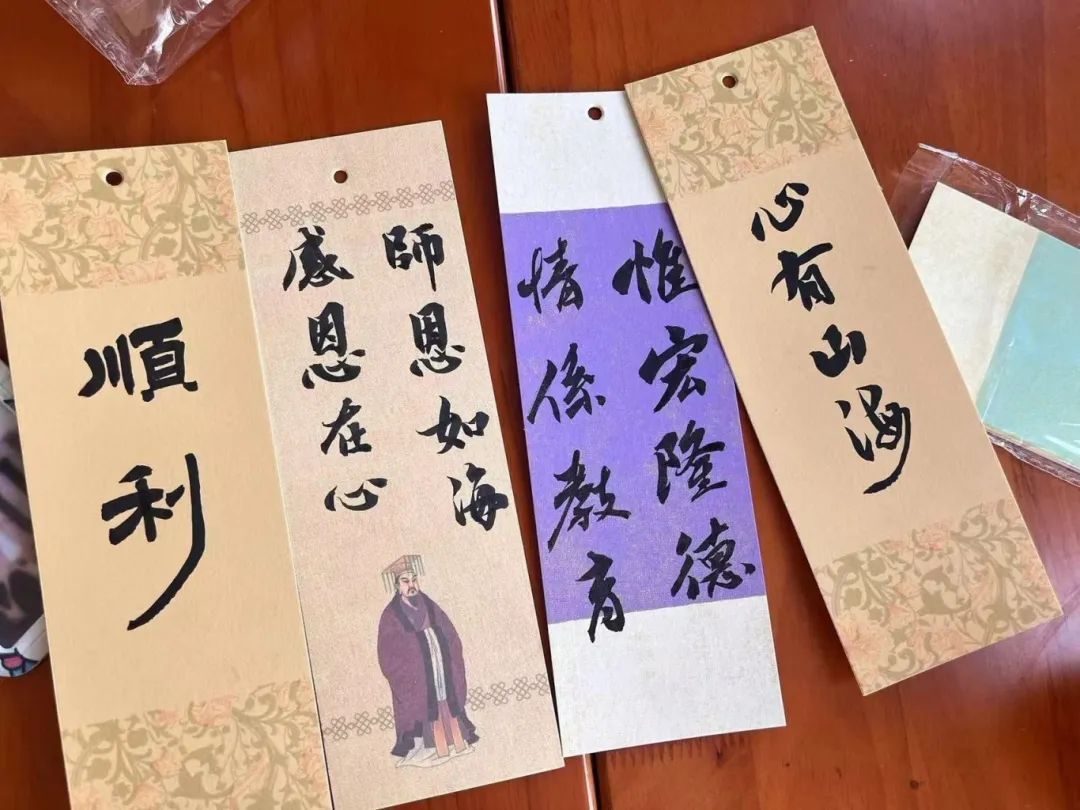 順利
師恩如海
感恩在心
惟宏隆德
情係教育
心有山海